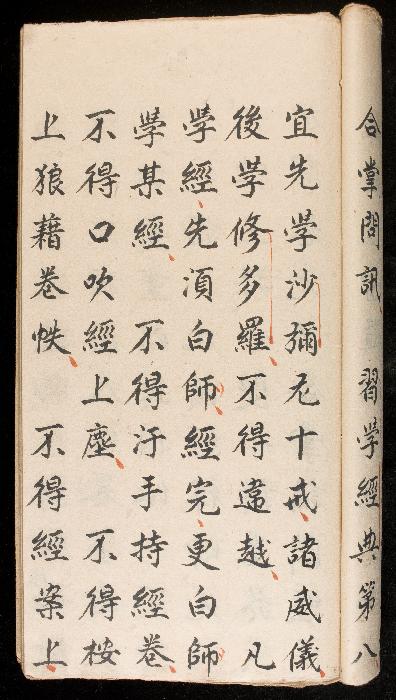 合掌問訊 習學經典第八
宜先學沙彌尼十戒諸威儀
後學修多羅不得違越 凡
學經先湏白師經完更白師
學某經 不得汙手持經卷
不得口吹經上塵 不得桉
上狼藉卷帙 不得經案上